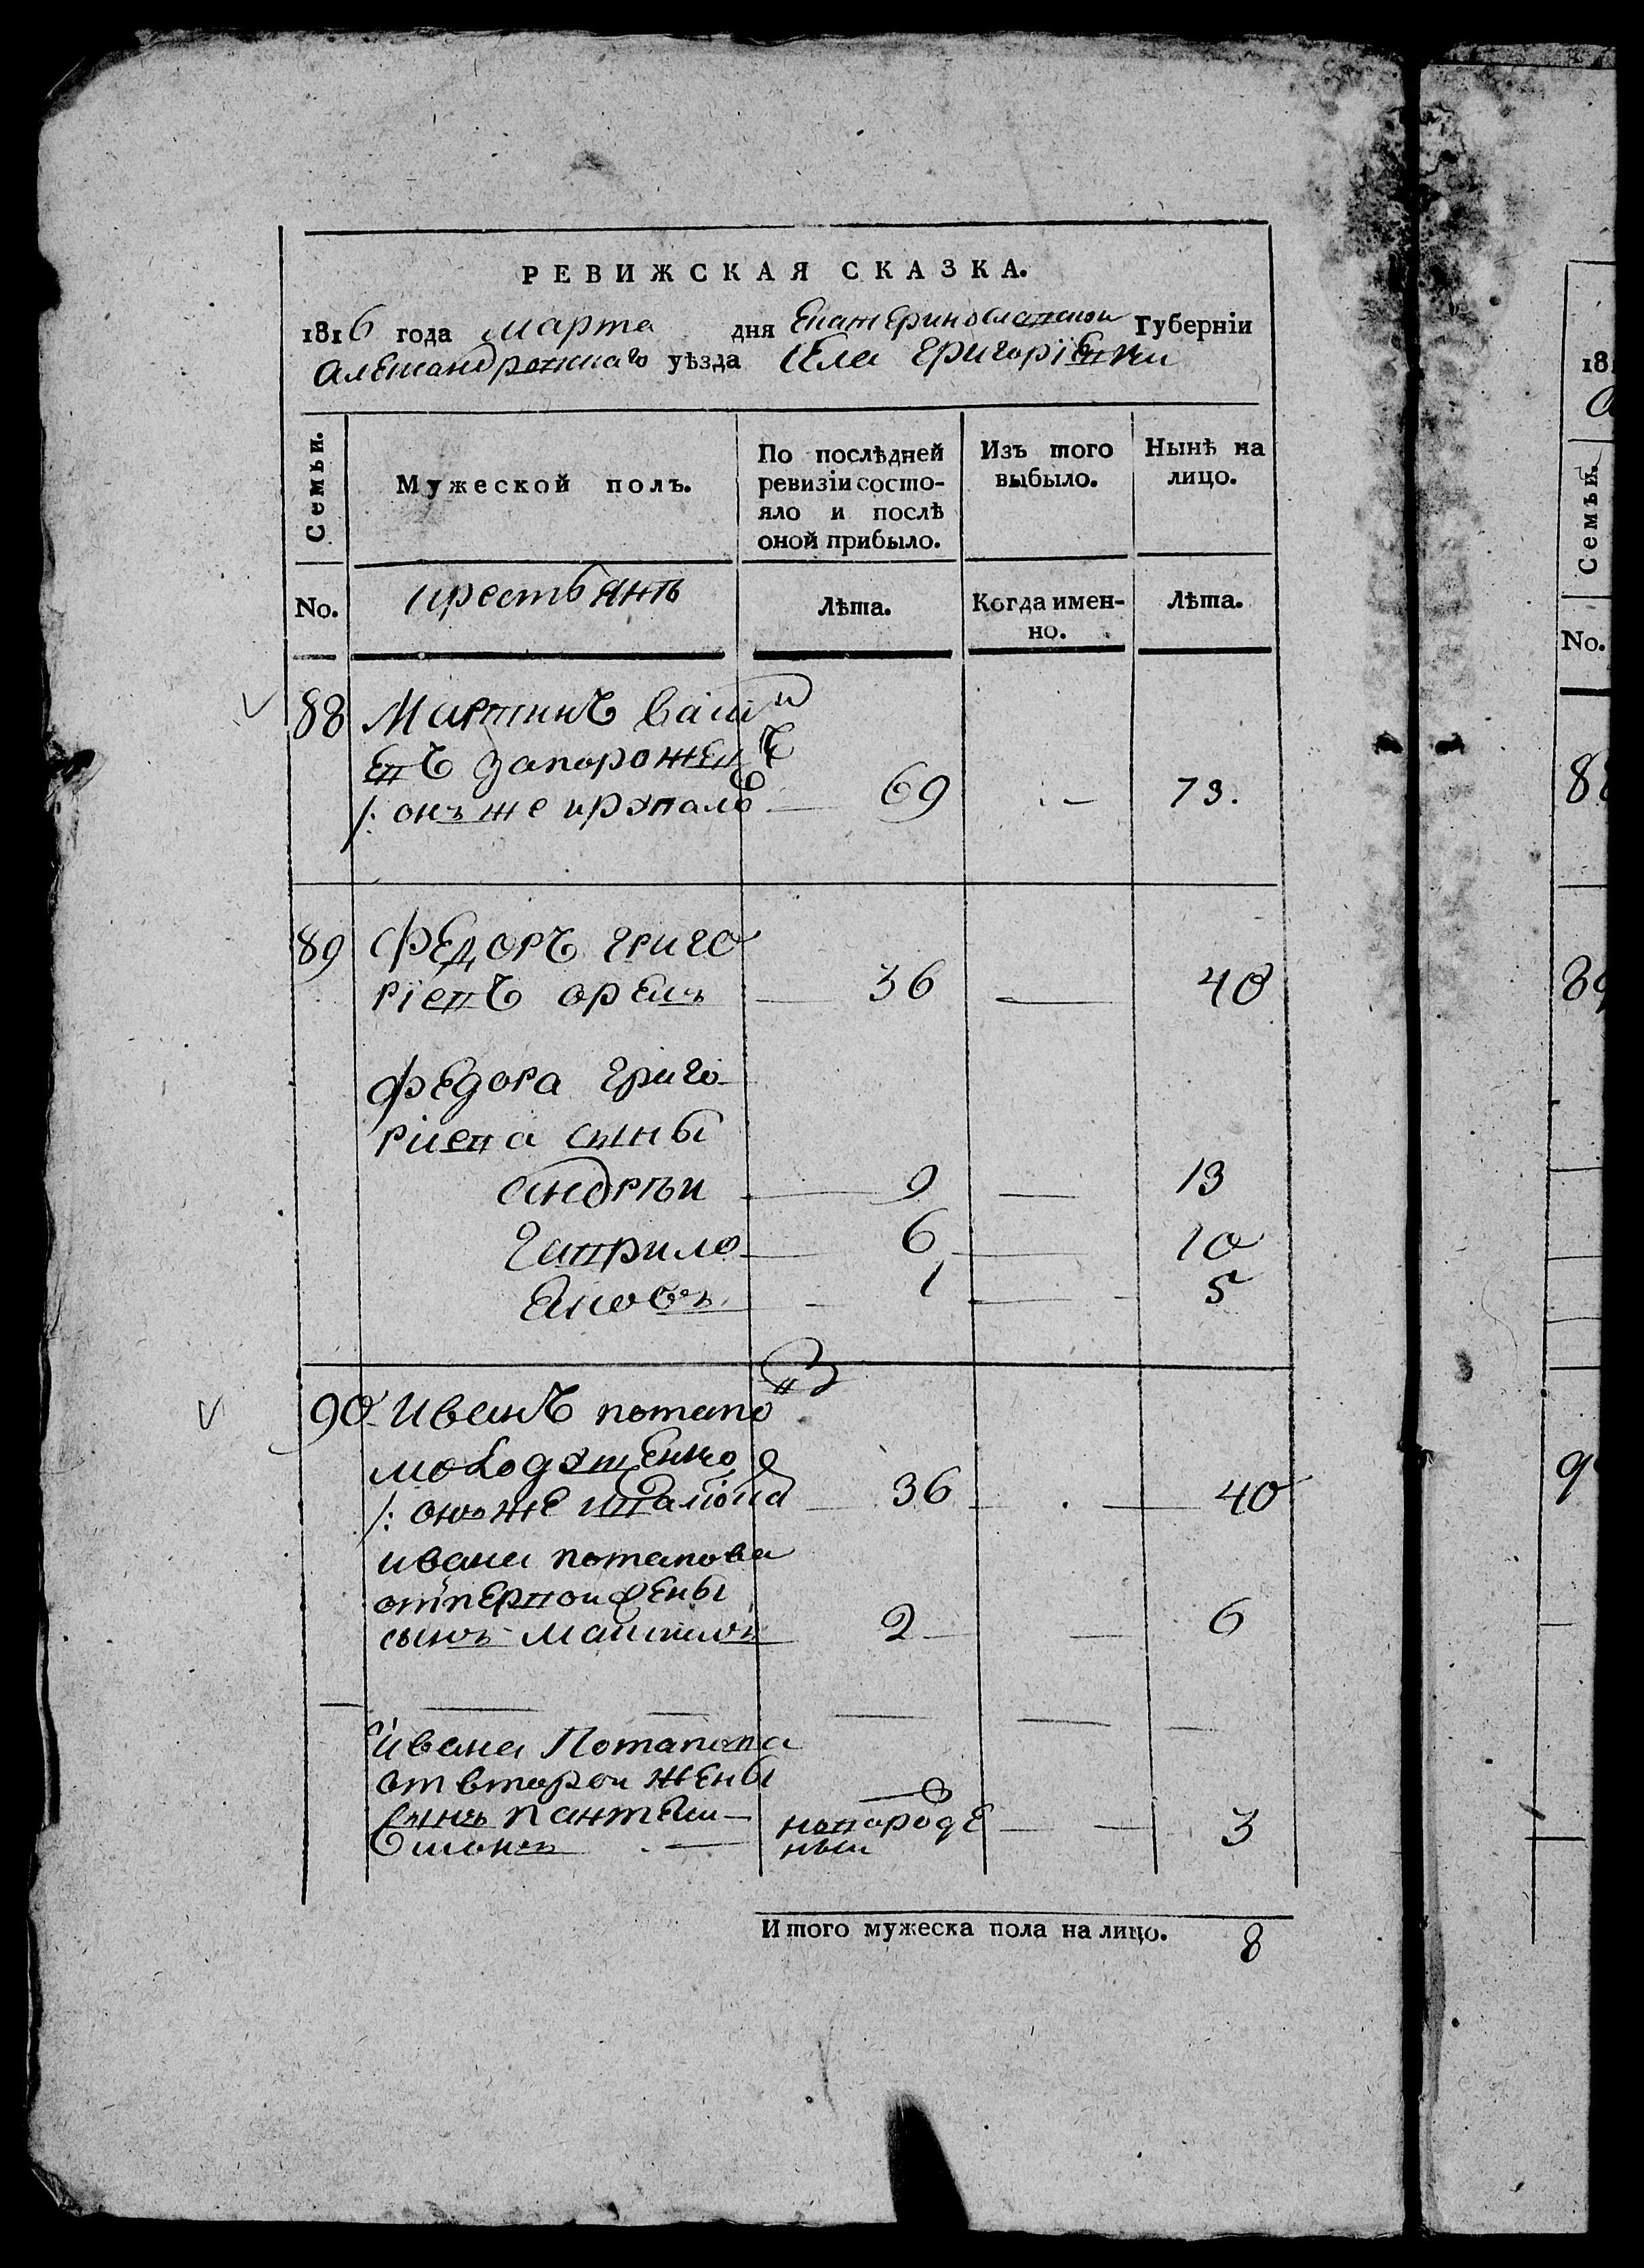 РЕВИЖСКАЯ СКАЗКА.
1816 года марта дня Екатеринославской Губерніи
Александровскаго уѣзда Села Григоріевки
Семьи.
Мужеской полъ.
По послѣдней ревизіи состо-
яло и послѣ
оной прибыло.
Изъ того
выбыло.
Нынѣ на
лицо.
No.
крестьянъ
Лѣта.
Когда имен-
но.
Лѣта.
88 Мартинъ Васил
евъ Запорожец
/: онъ же 69 73.
89 Федоръ Григо
ріевъ орел 36 40
Федора Григо
риева сыны
андрѣи 9 13
Гаврило 6 10
Яковъ 1 5
90 Иванъ потапо
въ
/: онъ же 36 40
ивана потапова
от первои жены
сынъ 2 6
Ивана Потапова
от второи жены
сынъ Пантели-
монъ новорожде
ныи 3
Итого мужеска пола на лицо. 8
181
Семьи.
No.
88
89